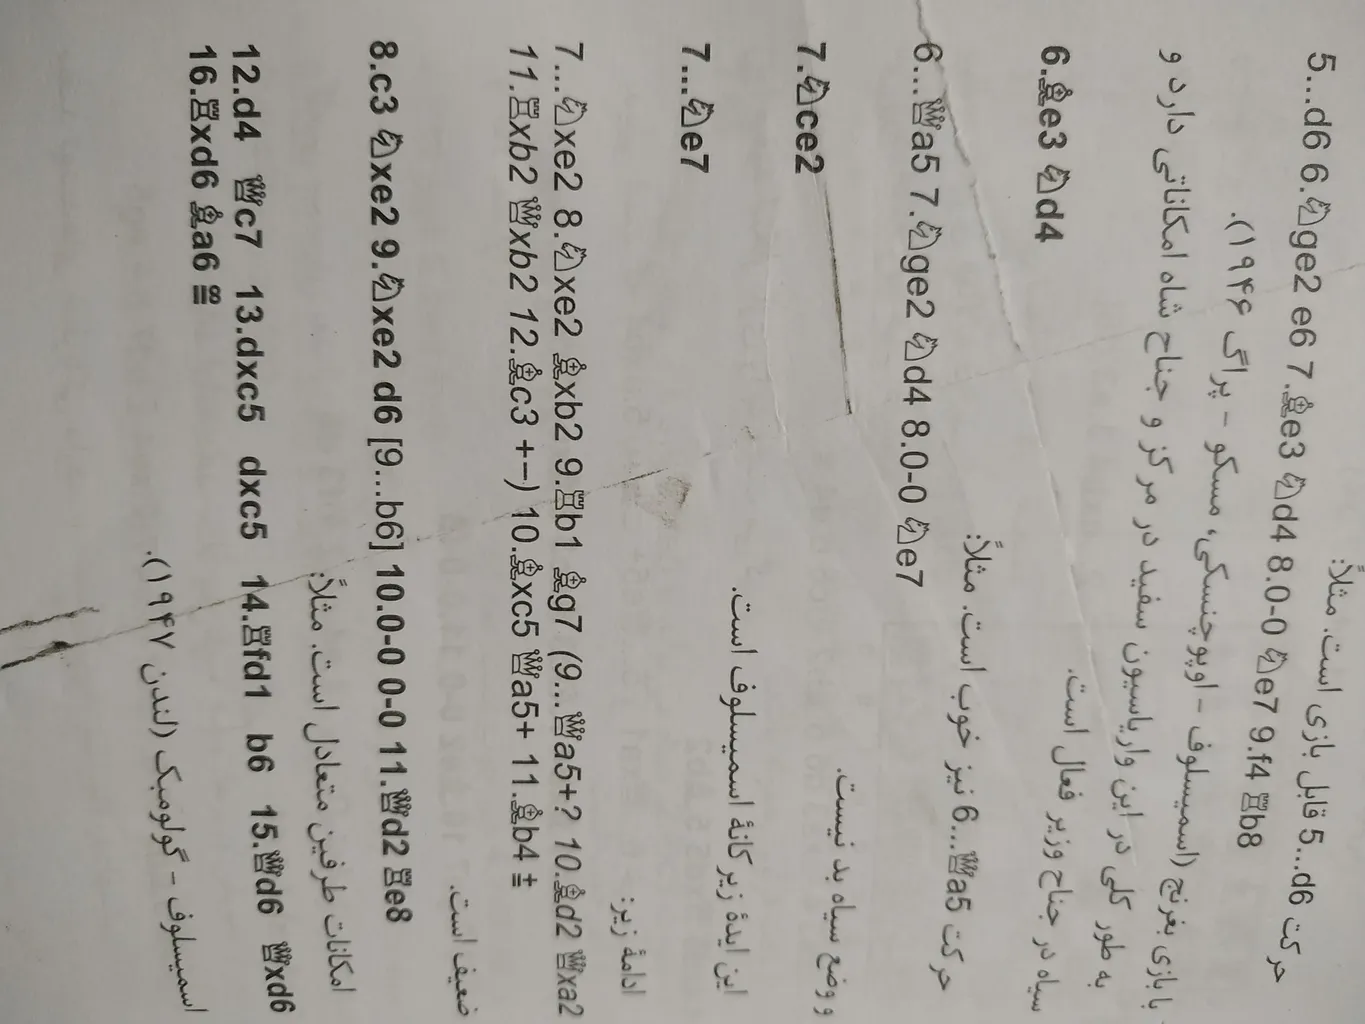 حرکت 5...d6 قابل بازی است. مثلاً:
5...d6 6.♘ge2 e6 7.♗e3 ♘d4 8.0-0 ♘e7 9.f4 ♖b8
با بازی بغرنج (اسمیسلوف - اوپوچنسکی، مسکو - پراگ ۱۹۴۶).
به طور کلی در این واریاسیون سفید در مرکز و جناح شاه امکاناتی دارد و
سیاه در جناح وزیر فعال است.
6.♗e3 ♘d4
حرکت 6...♕a5 نیز خوب است. مثلاً:
6...♕a5 7.♘ge2 ♘d4 8.0-0 ♘e7
و وضع سیاه بد نیست.
7.♘ce2
این ایدهٔ زیرکانهٔ اسمیسلوف است.
7...♘e7
ادامهٔ زیر:
7...♘xe2 8.♘xe2 ♗xb2 9.♖b1 ♗g7 (9...♕a5+? 10.♗d2 ♕xa2
11.♖xb2 ♕xb2 12.♗c3 +−) 10.♗xc5 ♕a5+ 11.♗b4 ±
ضعیف است.
8.c3 ♘xe2 9.♘xe2 d6 [9...b6] 10.0-0 0-0 11.♕d2 ♖e8
امکانات طرفین متعادل است. مثلاً:
12.d4 ♕c7 13.dxc5 dxc5 14.♖fd1 b6 15.♕d6 ♕xd6
16.♖xd6 ♗a6 ≌
اسمیسلوف - گولومبک (لندن ۱۹۴۷).